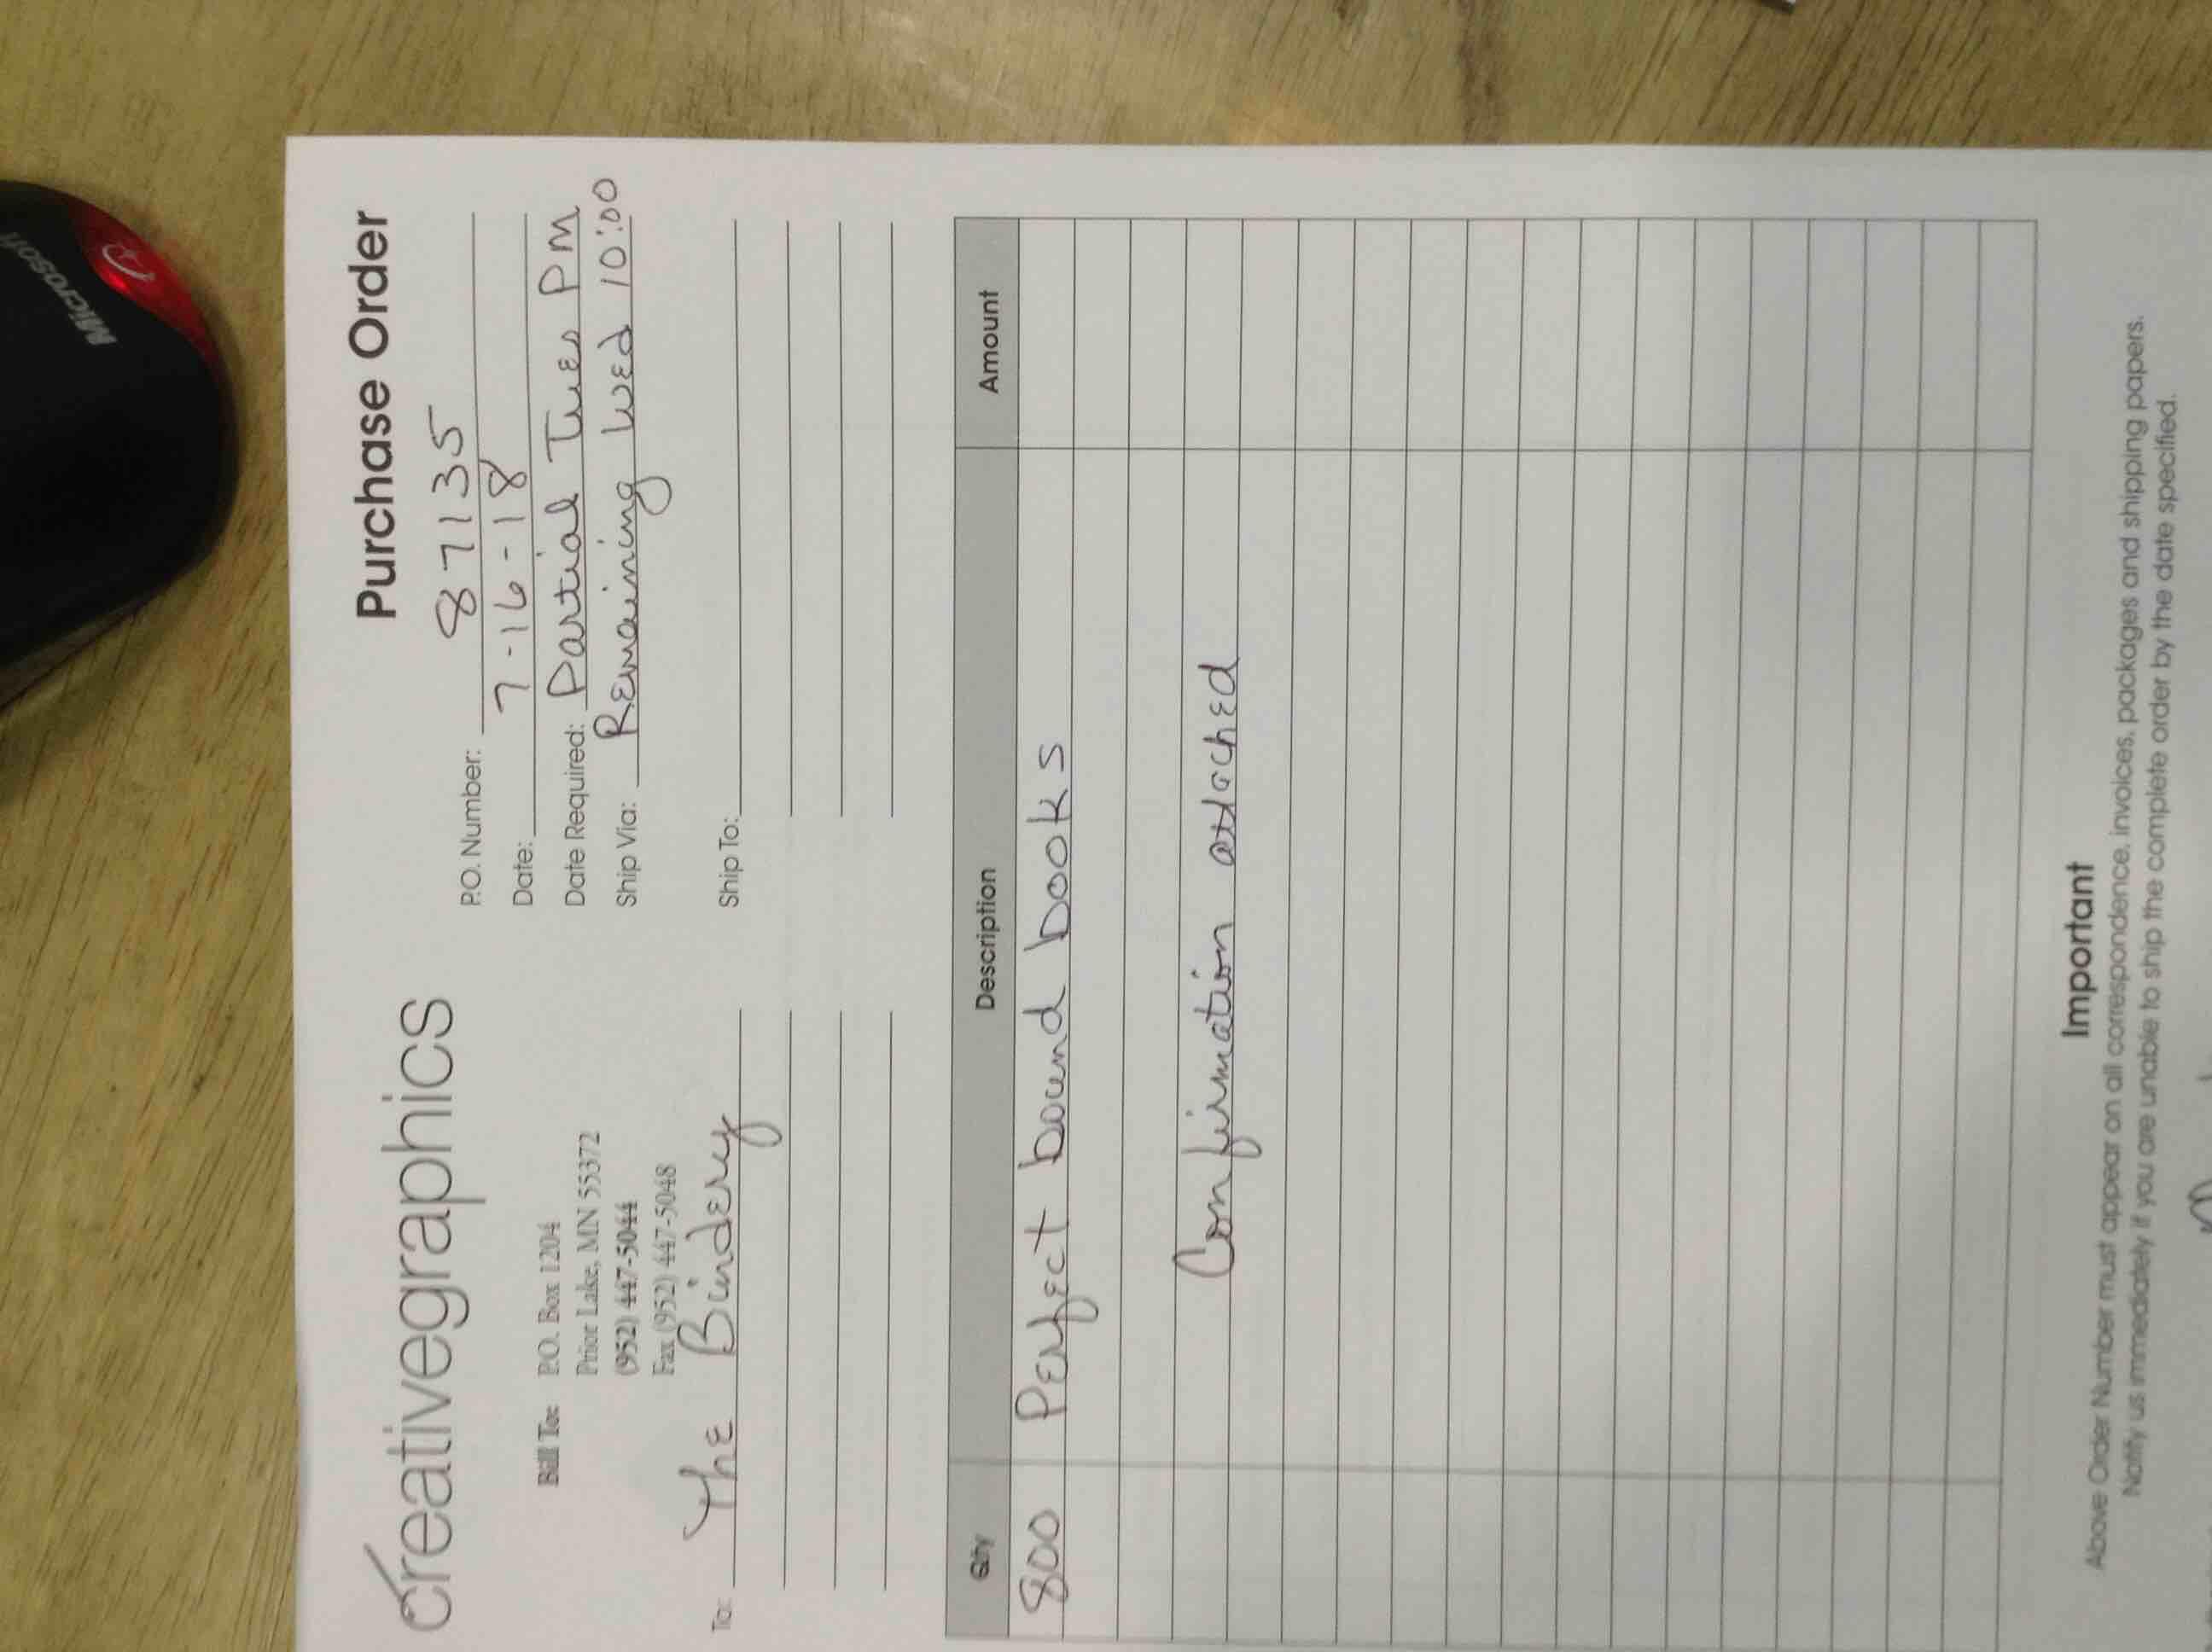 creativegraphics
Purchase Order
Bill To: P.O. Box 1204
Prior Lake, MN 55372
(952) 447-5044
Fax (952) 447-5048
P.O. Number: 87135
Date: 7-16-18
Date Required: Partial Tues PM
Ship Via: Remaining Wed 10:00
To: The Bindery
Ship To:
Qty Description Amount
800 Perfect bound books
Confirmation attached
Important
Above Order Number must appear on all correspondence, invoices, packages and shipping papers.
Notify us immediately if you are unable to ship the complete order by the date specified.
Microsoft